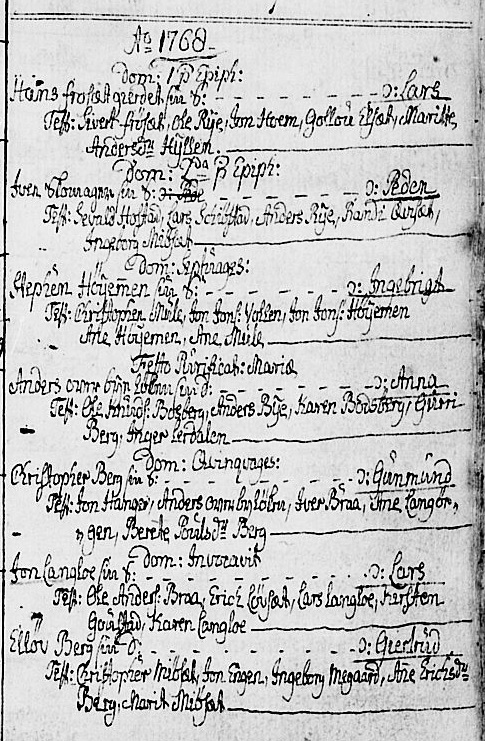 Ao 1768
Dom: 1 p Epiph:
Hans frosæt gierdet sin s: - - - - - - - D: Lars
Test: Sivert frisæt, Ole Rye, Jon Hoem, Gollou Elsæt, Maritte
Andersdtr Hyllem.
Dom: 2da p Epiph:
Iven sin s: - - - - - D: Peden
Test: Sevald Hofstad, Lars Schiefstad, Anders Rye, Randi Qvisæt,
Ingeborg Mitsæt
Dom: Septuages:
Stephen Höyemen sin s: - - - - - D: Ingebrigt
Test: Christopher Mæle, Jon Jons: Vollen, Jon Jons: Höyemen
Ane Höyemen, Ane Mæle
Festo Purificat: Mariæ
Anders owre byn Lölun sin d: - - - - - D: Anna
Test: Ole Knuds: Bogberg, Anders Rye, Karen Bogberg, Gurri
Berg, Inger Lerdalen
Dom: Qvinqvages:
Christopher Berg sin s: - - - - - D: Gunmund
Test: Jon Hanger, Anders owre by Lölun, Iver Braa, Ane Langör,,
,,gen, Berete Poulsdtr Berg
Dom: Invocavit
Jon Langloe sin s: - - - - - D: Lars
Test: Ole Anders: Braa, Erich Löfsæt, Lars Langloe, Kirsten
Goustad, Karen Langloe
Ellou Berg sin d: - - - - - D: Giertrud
Test: Christopher Mitsæt, Jon Engen, Ingeborg Megaard, Ane Erichsdtr
Berg, Marit Mitsæt